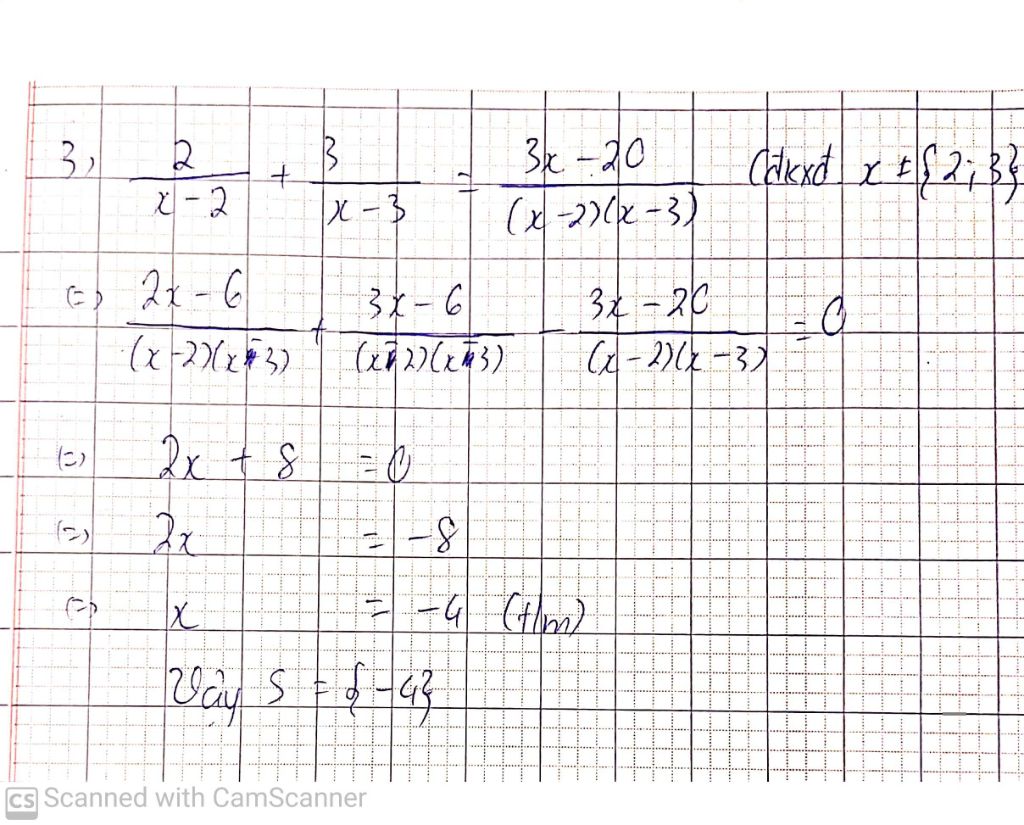 3, 2/(x-2) + 3/(x-3) = (3x-20)/((x-2)(x-3)) (đkxđ x ≠ {2; 3}
(=) (2x-6)/((x-2)(x-3)) + (3x-6)/((x-2)(x-3)) - (3x-20)/((x-2)(x-3)) = 0
(=) 2x + 8 = 0
(=) 2x = -8
(=) x = -4 (t/m)
Vậy S = {-4}
CS Scanned with CamScanner